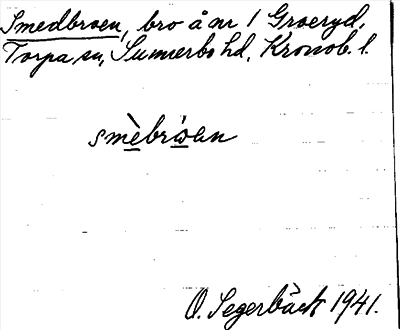 Smedbroen, bro å nr 1 Groeryd,
Torpa sn, Sunnerbo hd, Kronob. l.
smèbróan
O. Segerbäck 1941.